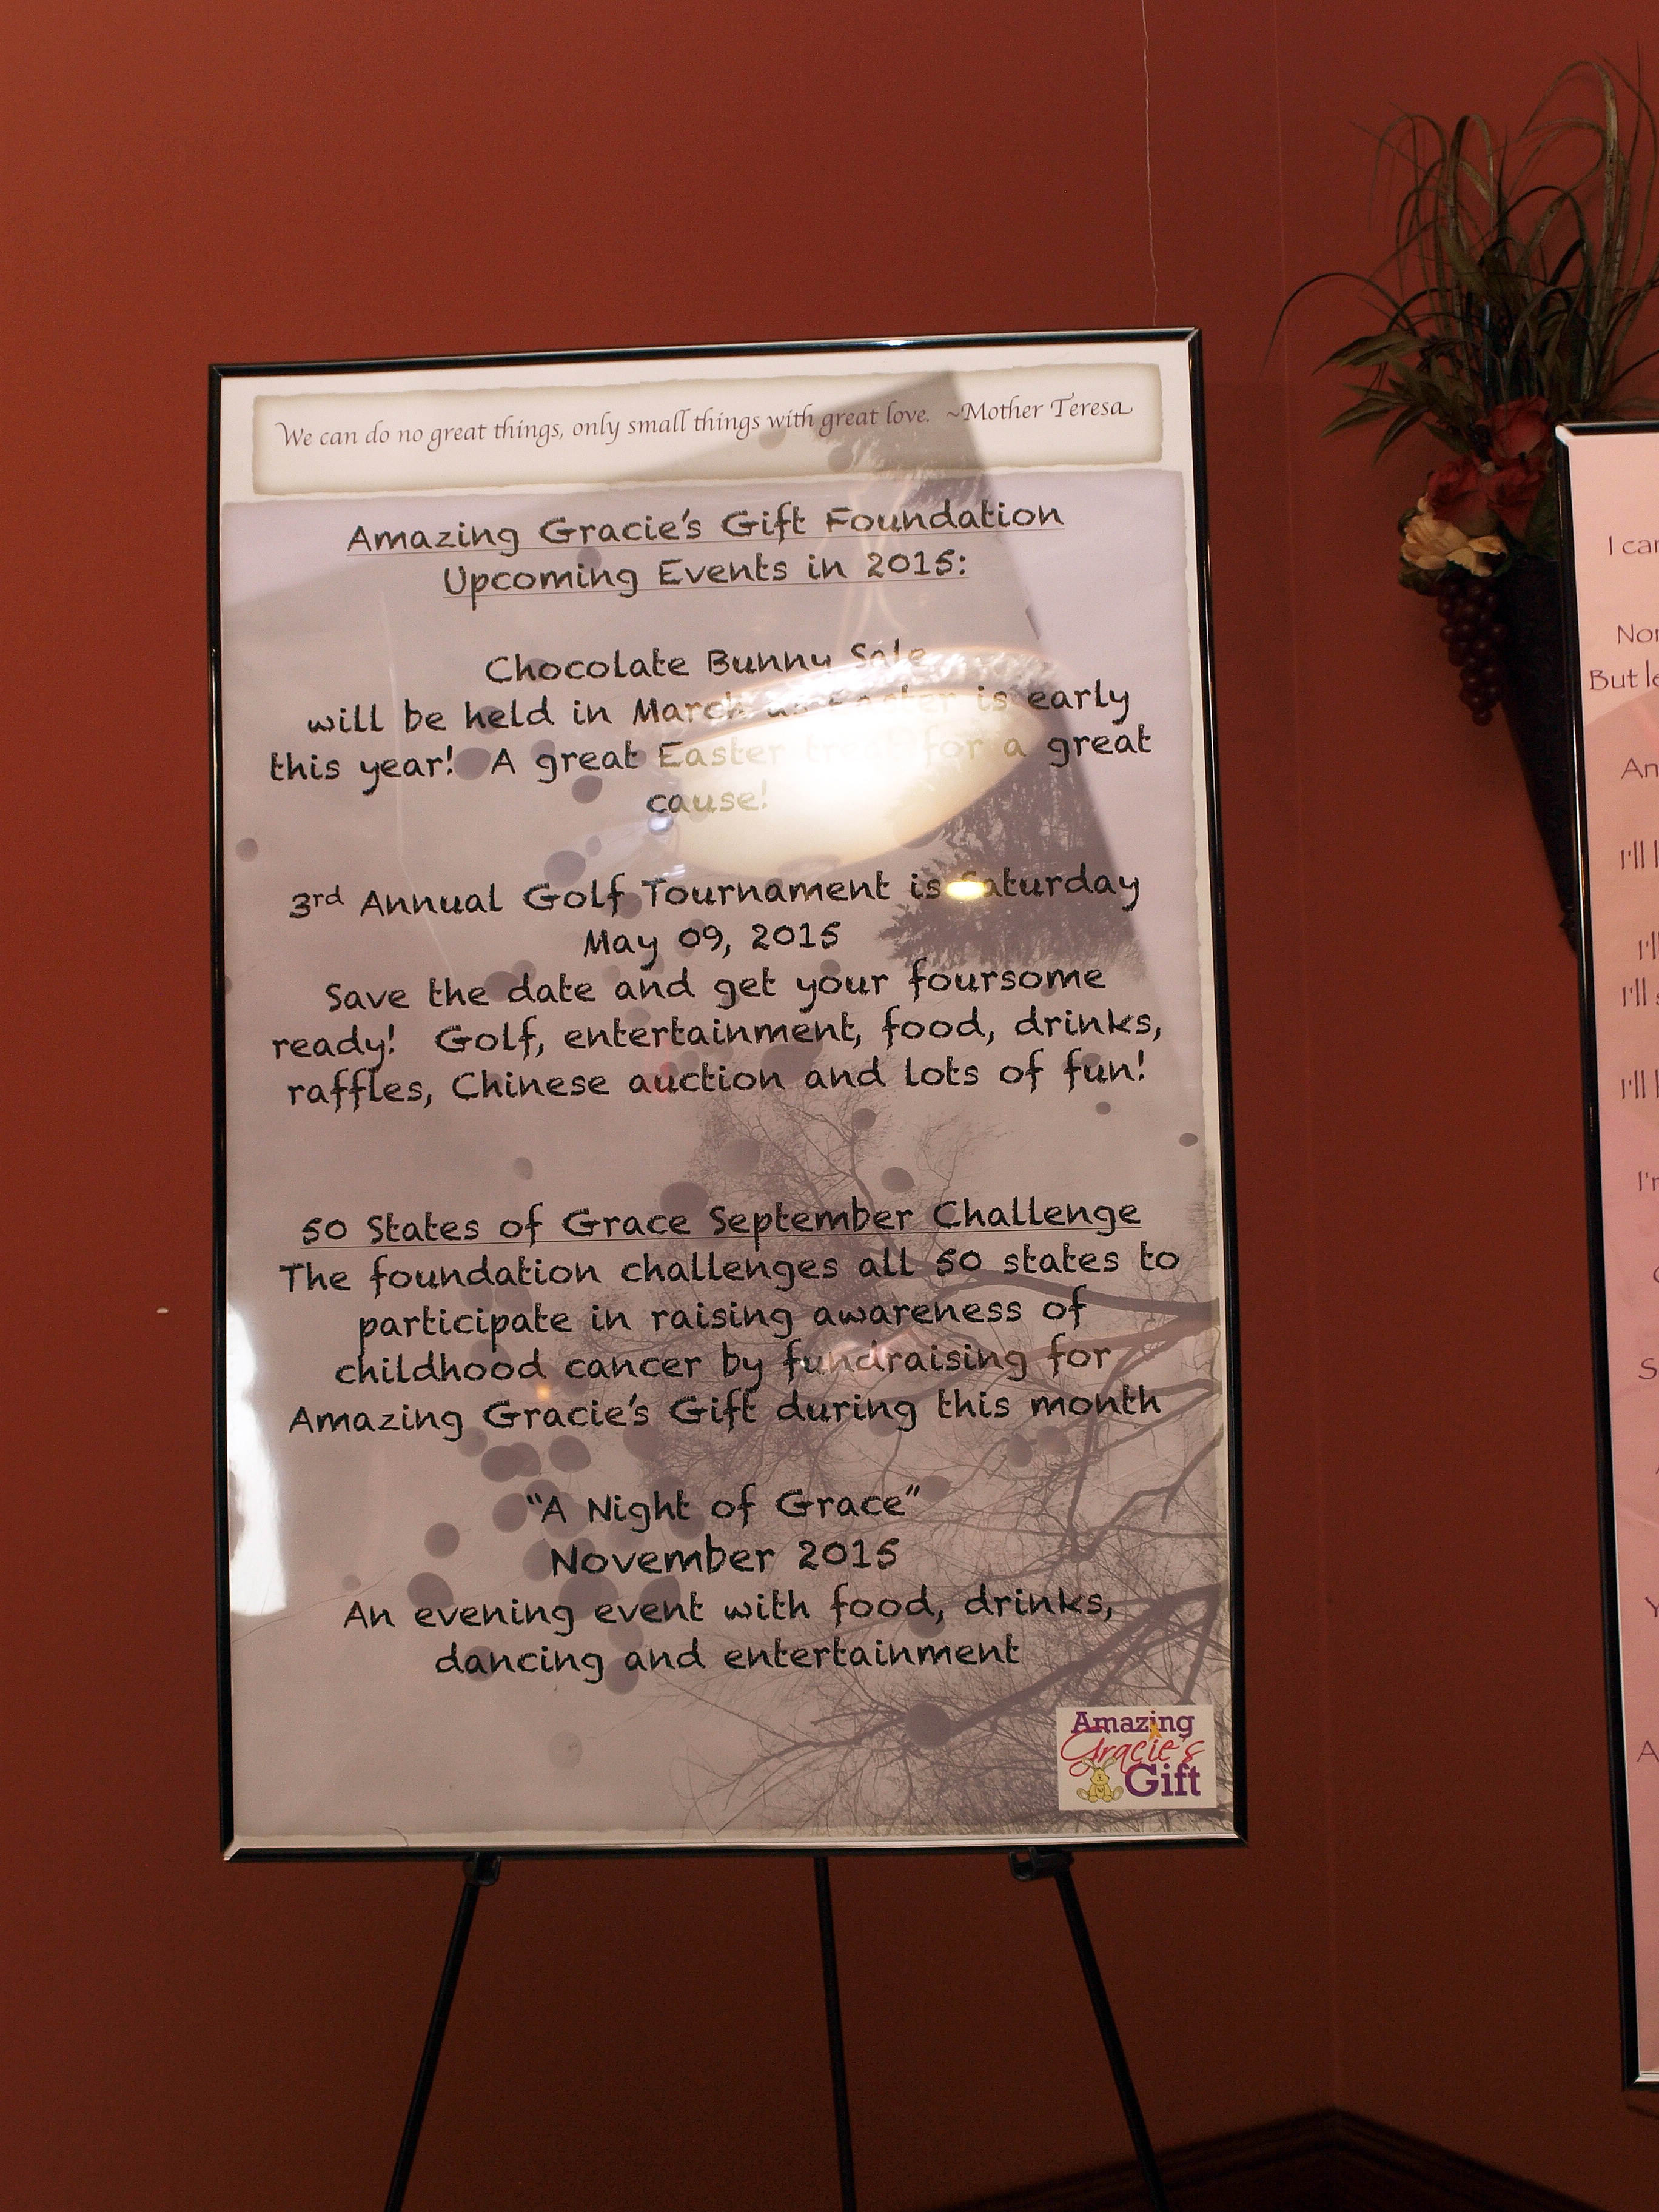 We can do no great things, only small things with great love. ~Mother Teresa
Amazing Gracie's Gift Foundation
Upcoming Events in 2015:
Chocolate Bunny Sale
will be held in March as Easter is early
this year! A great Easter treat for a great
cause!
3rd Annual Golf Tournament is Saturday
May 09, 2015
Save the date and get your foursome
ready! Golf, entertainment, food, drinks,
raffles, Chinese auction and lots of fun!
50 States of Grace September Challenge
The foundation challenges all 50 states to
participate in raising awareness of
childhood cancer by fundraising for
Amazing Gracie's Gift during this month
"A Night of Grace"
November 2015
An evening event with food, drinks,
dancing and entertainment
Amazing
Gracie's
Gift
I
But
I'll
I'll
I'll
I'll